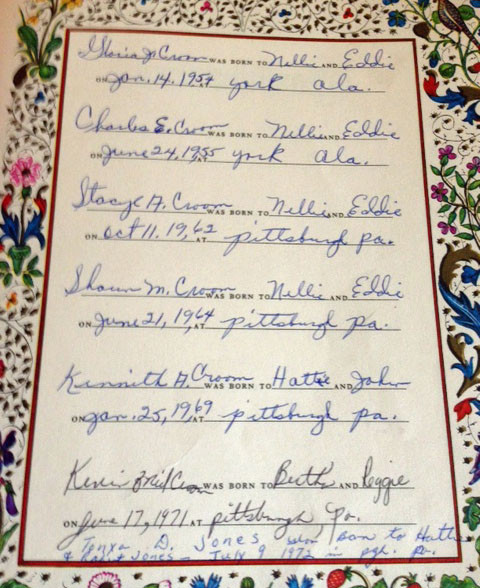 Gloria J. Croom WAS BORN TO Nellie AND Eddie
ON Jan. 14, 1954 york ala.
Charles E. Croom WAS BORN TO Nellie AND Eddie
ON June 24, 1955 AT york ala.
Stacye A. Croom WAS BORN TO Nellie AND Eddie
ON Oct 11. 19,62 AT pittsburgh pa.
Shawn M. Croom WAS BORN TO Nellie AND Eddie
ON June 21, 1964 AT pittsburgh pa.
Kennith A. Croom WAS BORN TO Hattie AND John
ON Jan. 25, 1969 AT pittsburgh pa.
Kevin Croom WAS BORN TO Beth AND Reggie
ON June 17, 1971 AT pittsburgh, Pa.
Tonya D. Jones was born to Hattie
& Jones - July 9 1972 in pgh. pa.